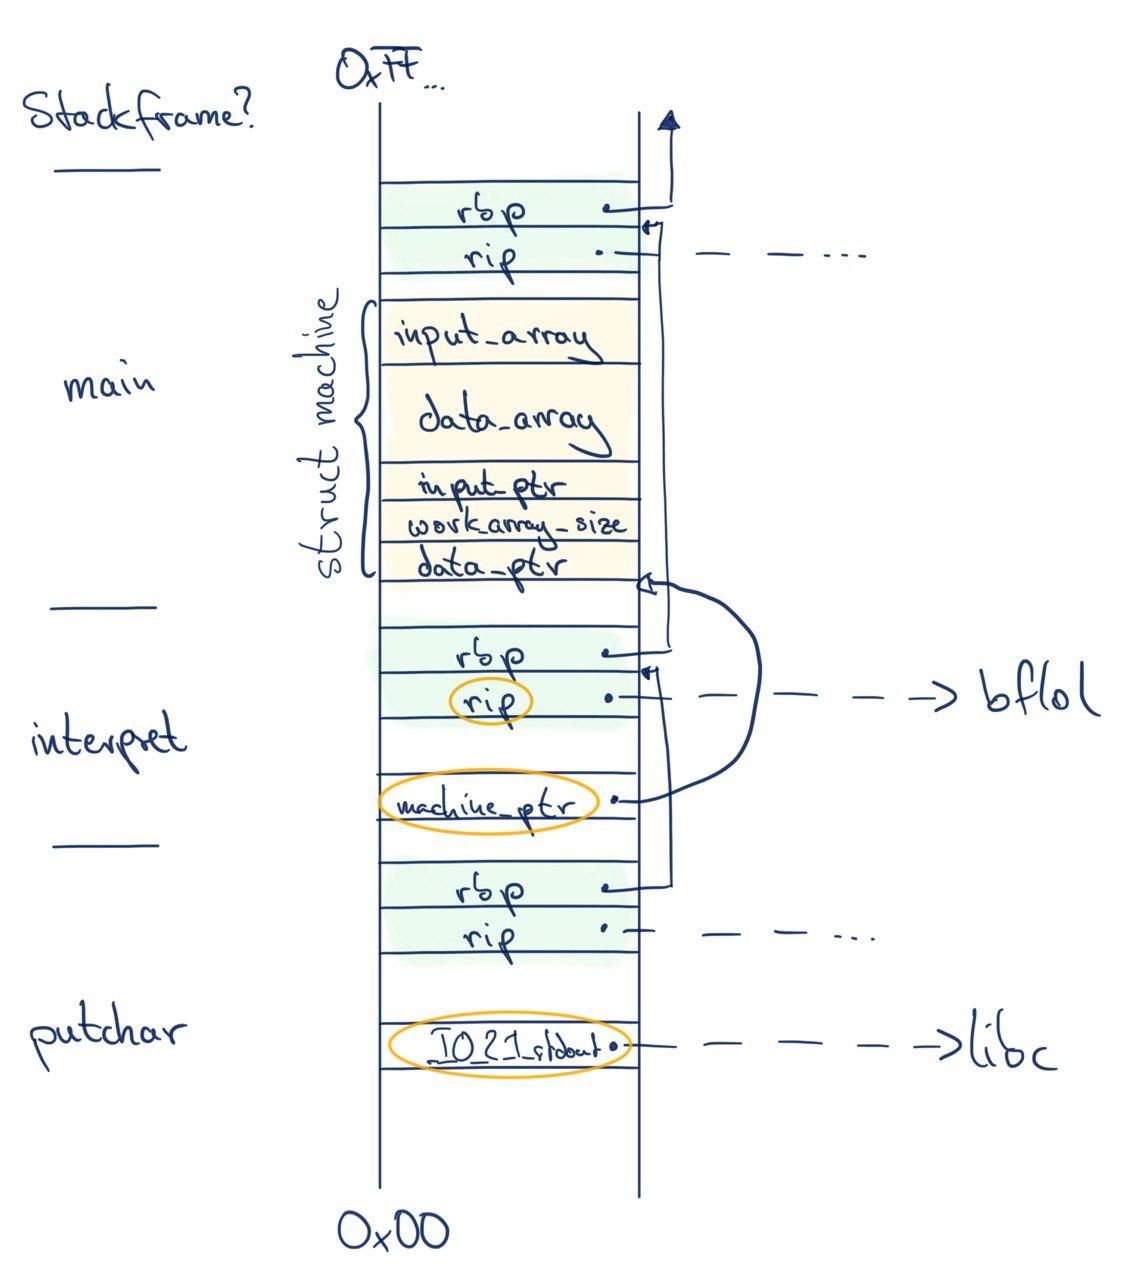 0xFF...
Stackframe?
rbp
rip
...
struct machine
input_array
main
data_array
input_ptr
work_array_size
data_ptr
rbp
rip
bflol
interpret
machine_ptr
rbp
rip
...
putchar
IO_2_1_stdout
libc
0x00